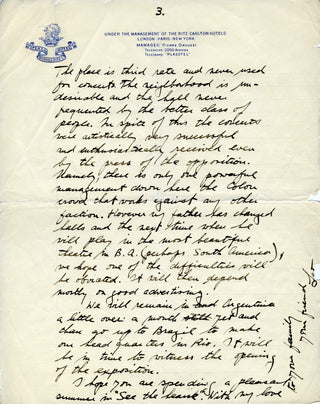 3.
UNDER THE MANAGEMENT OF THE RITZ CARLTON HOTELS
LONDON-PARIS-NEW YORK
MANAGER
The place is third rate and never used
for concerts the neighborhood is un-
desirable and the hall never
frequented by the better class of
people. In spite of this the concerts
were artistically very successful
and enthusiastically received even
by the press of the opposition.
Namely, there is only one powerful
management down here the Colon
crowd that works against any other
faction. However my father has changed
halls and the next time when he
will play in the most beautiful
theatre in B.A. (perhaps South America),
we hope one of the difficulties will
be obviated. It will then depend
mostly on good advertising.
We will remain in Argentina
a little over a month still yet and
then go up to Brazil to make
our head quarters in Rio. It will
be in time to witness the opening
of the exposition.
I hope you are spending a pleasant
summer in "See the
With my love
to your family
your friend